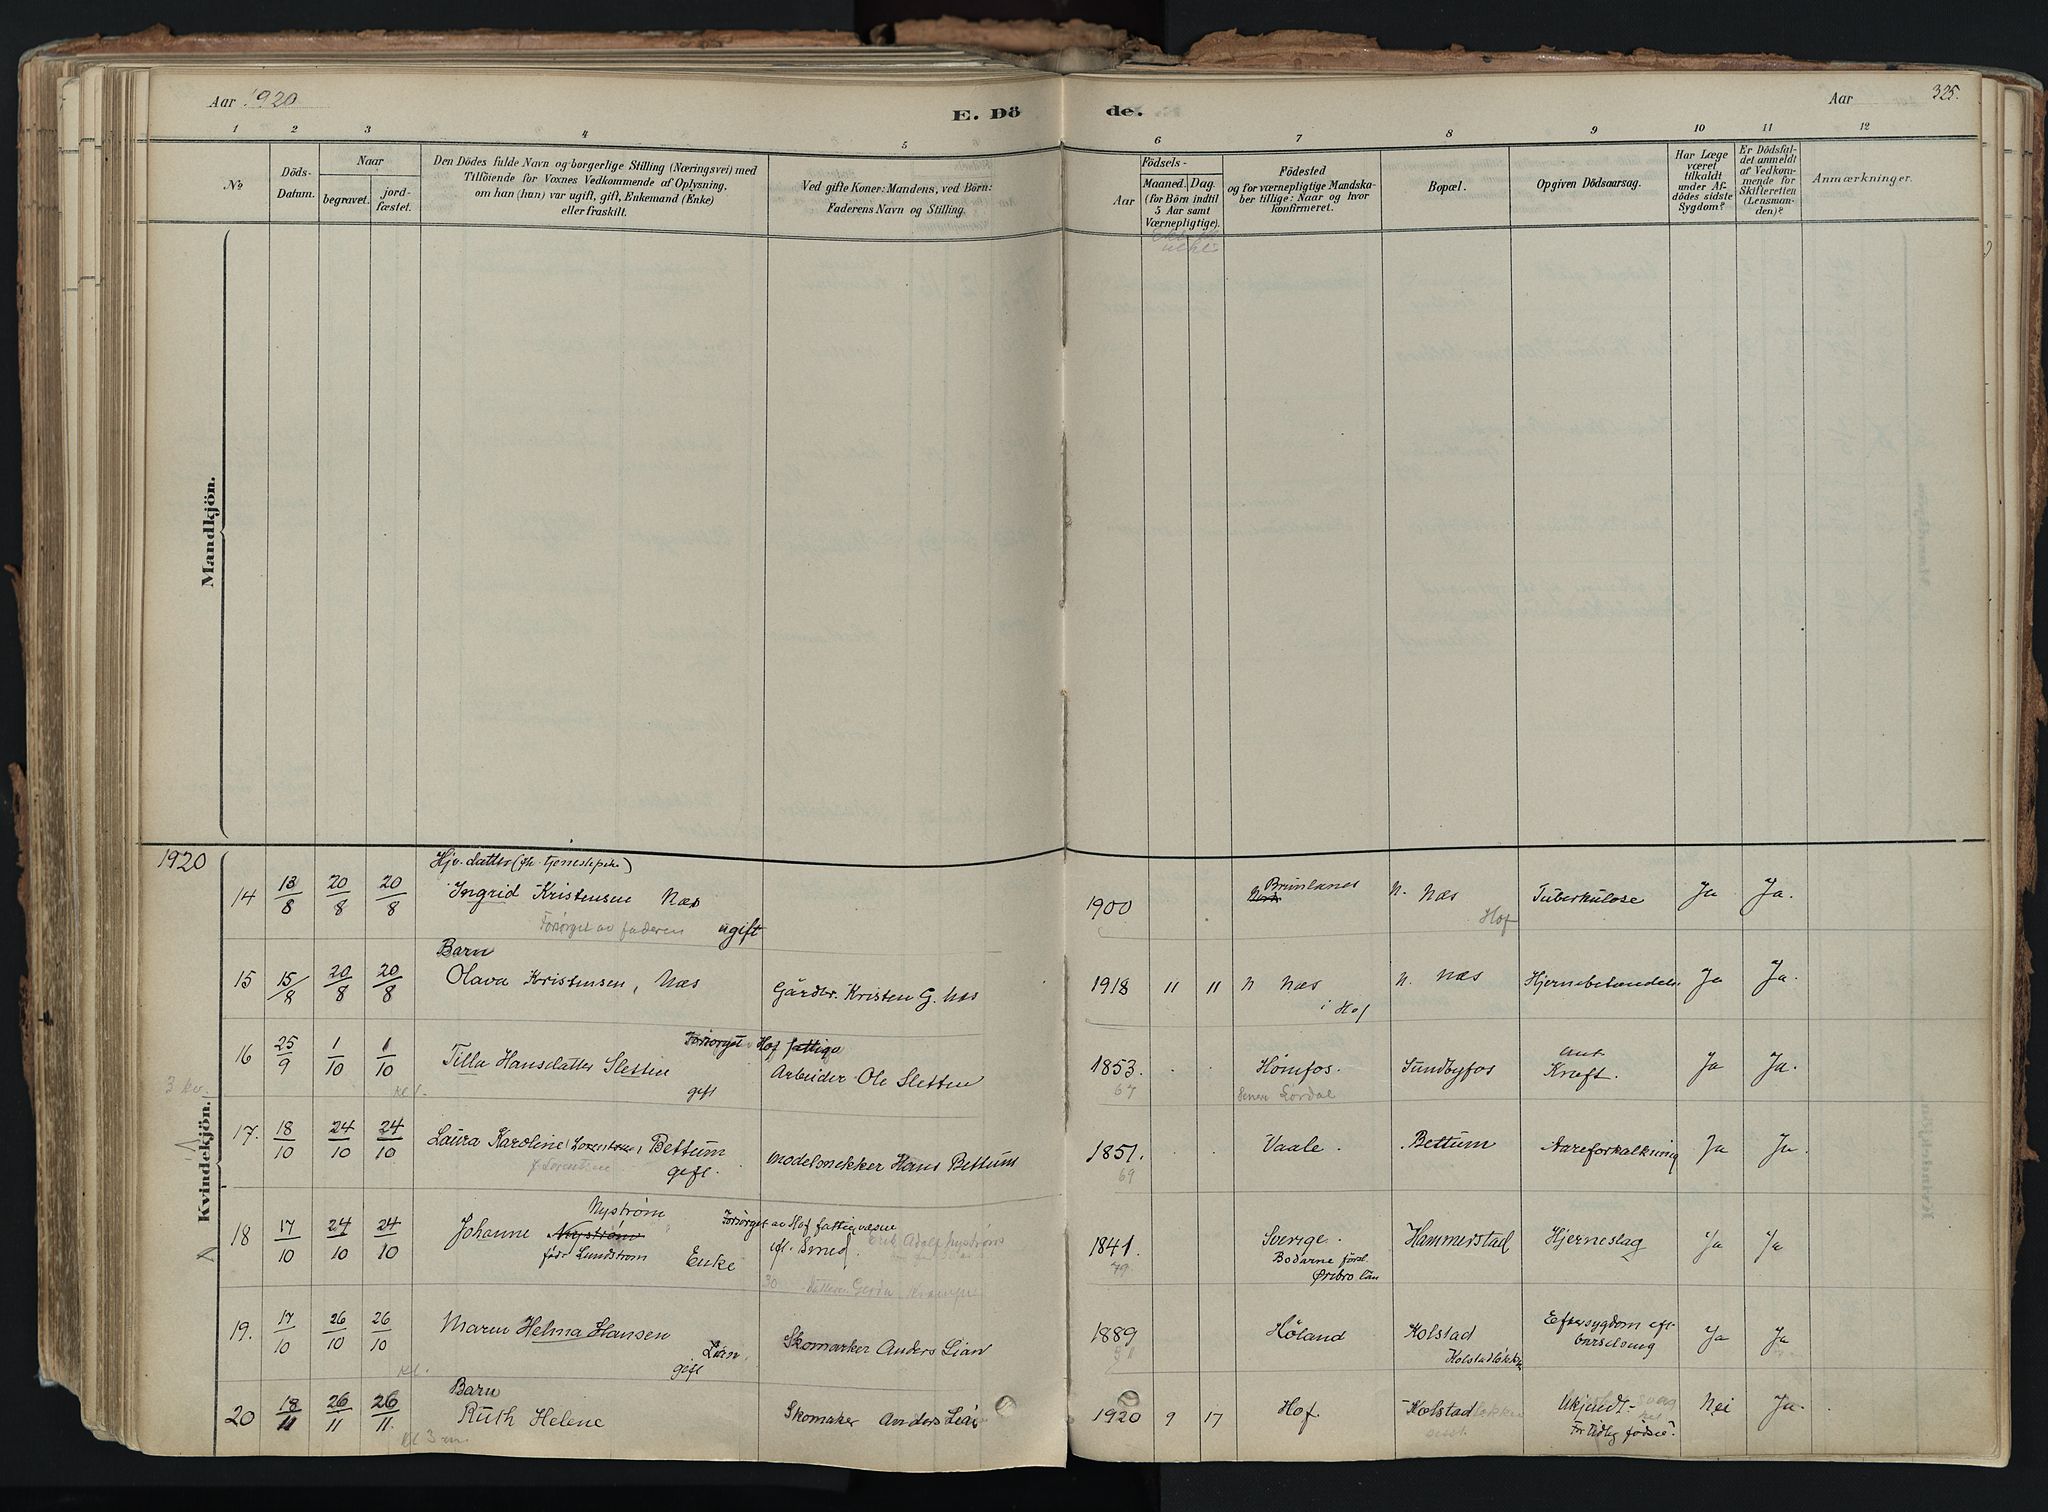 Aar 1920
E. Dö
de.
Aar
325.
1 2 3 4 5 6 7 8 9 10 11 12
No
Döds-
Datum.
Naar
begravet.
jord-
fæstet.
Den Dödes fulde Navn og borgerlige Stilling (Næringsvei) med
Tilföiende for Voxnes Vedkommende af Oplysning,
om han (hun) var ugift, gift, Enkemand (Enke)
eller fraskilt.
Ved gifte Koner: Mandens, ved Börn:
Faderens Navn og Stilling.
Födsels-
Aar
Maaned. Dag.
(for Börn indtil
5 Aar samt
Værnepligtige).
Födested
og for værnepligtige Mandska-
ber tillige: Naar og hvor
konfirmeret.
Bopæl.
Opgiven Dödsaarsag.
Har Læge
været
tilkaldt
under Af-
dödes sidste
Sygdom?
Er Dödsfal-
det anmeldt
af Vedkom-
mende for
Skifteretten
(Lensman-
den)?
Anmærkninger.
Mandkjön.
1920
Kvindekjön.
Hjv. datter
14 13/8 20/8 20/8 Ingrid Kristensen Næs 1900 Brunlanes N. Næs Tuberkulose Ja Ja.
Forsørget av faderen ugift Hof
Barn
15 15/8 20/8 20/8 Olava Kristensen, Næs Gårdbr. Kristen G. Næs 1918 11 11 N Næs N. Næs Hjernebetændelse Ja Ja.
i Hof
Forsørget Hof fattigv
16 25/9 1/10 1/10 Tilla Hansdatter Sletten Arbeider Ole Sletten 1853. Hømfos. Sundbyfos Kræft. Ja Ja.
gift 67
17. 18/10 24/10 24/10 Laura Karoline Bettum Hans Bettum 1851. Vaale. Bettum Aareforkalkning Ja Ja
f. Lorentsen gift. 69
Nystrøm Forsørget av Hof fattigvæsne
18 17/10 24/10 24/10 Johanne Nystrøm eft. Smed Erik Adolf Nystrøm 1841. Sverige. Hammerstad Hjerneslag Ja Ja
født Lundstrøm Enke 79 Bodarne först.
Ørebro län
19. 17/10 26/10 26/10 Maren Helma Hansen Skomarker Anders Lian 1889 Høland Kolstad Eftersygdom eft. Ja Ja
Lian, gift Kolstadløkken barselseng
Barn
20 18/11 26/11 26/11 Ruth Helene Skomaker Anders Lian 1920 9 17 Hof. Kolstad Ukjendt Nei Ja.
For tidlig fødsel.